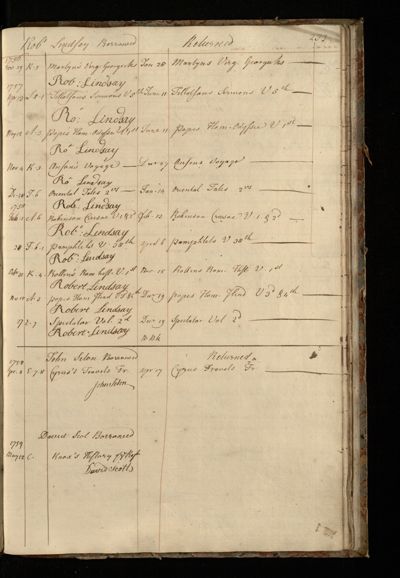 Rob.t Lindsay Borrowed Returned
1756
Nov 29 K-7 Martyns Virg. Georgicks Jan 20 Martyns Virg. Georgicks
Rob: Lindsay
1757
Apr 13 Tillotsons Sermons V 8th June 11 Tillotsons Sermons V 8th
Ro: Lindsay
May 12 A-2 Popes Hom. Odyssey V 1st June 11 Popes Hom. Odyssey V 1st
Ro. Lindsay
Nov 4 K-3 Ansons Voyage Dec 27 Ansons Voyage
Ro Lindsay
Oriental Tales 2 Jan 12 Oriental Tales 2
1758 Rob. Lindsay
A-6 Robinson Crusoe V 1 & 2d Feb 12 Robinson Crusoe V 1 & 2d
Rob. Lindsay
28 F-6-1 Pamphlets V 38th April 6 Pamphlets V 38th
Rob. Lindsay
K-4 Rollins Rom. hist. V 1st Nov 15 Rollins Rom. Hist. V 1st
Robert Lindsay
Nov 15 A-2 Popes Hom. Iliad V 3d & 4th Dec 19 Popes Hom. Iliad V 3d & 4th
Robert Lindsay
Spectator Vol. 2d Dec 19 Spectator Vol 2d
Robert Lindsay
1758 John Borrowed Returned
Apr. 8 E-7-8 Cyrus's Travels Fr. Apr 17 Cyrus Travels Fr.
1759 David Scot Borrowed
May 12 C- Knox's History of Ref
David Scott